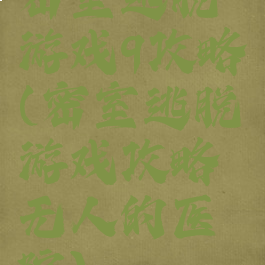 密室逃脱
游戏9攻略
(密室逃脱
游戏攻略
无人的医